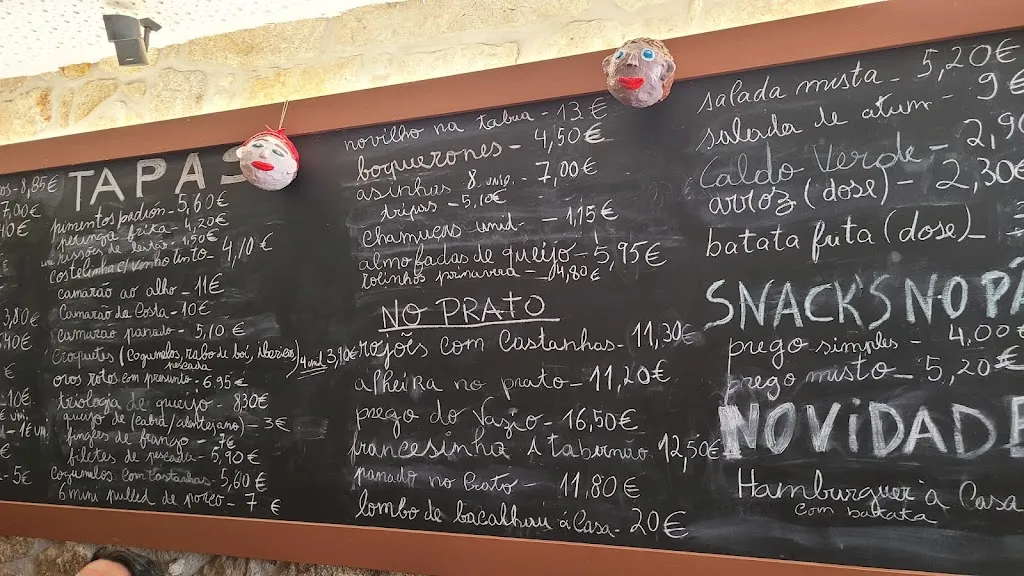 os-8,85€
7,00€
40€
3,80€
40€
-10€
-1€ un
-5€
TAPAS
pimentos padrón-5,60€
petinga frita-4,20€
rissois de leitão-1,50€
costelinha c/vinho tinto-4,10€
camarão ao alho-11€
Camarão da Costa-10€
camarão panado-5,10€
Croquetes (Cogumelos, rabo de boi, ibericos) 4 unid 3,90€
pescada
ovos rotos com presunto-6,95€
triologia de queijo-8,30€
queijo de (cabra/alentejano)-3€
pingles de frango-7€
filetes de pescada-5,90€
Cogumelos com Castanhas-5,60€
6 mini pulled de porco-7€
novilho na tabua-13€
boquerones-4,50€
asinhas 8 unip.-7,00€
tripas-5,10€
chamuças unid-1,15€
almofadas de queijo-5,95€
rolinhos primavera-4,80€
NO PRATO
rojões com Castanhas-11,30€
alheira no prato-11,20€
prego do Vazio-16,50€
francesinha A tabernão 12,50€
panado no Prato-11,80€
lombo de bacalhau á Casa-20€
salada mista-5,20€
salada de atum-9€
Caldo Verde-2,90
arroz (dose)-2,30€
batata frita (dose)-
SNACK'S NO PÃ
prego simples-4,00
prego misto-5,20€
NOVIDADE
Hamburguer à Casa
com batata